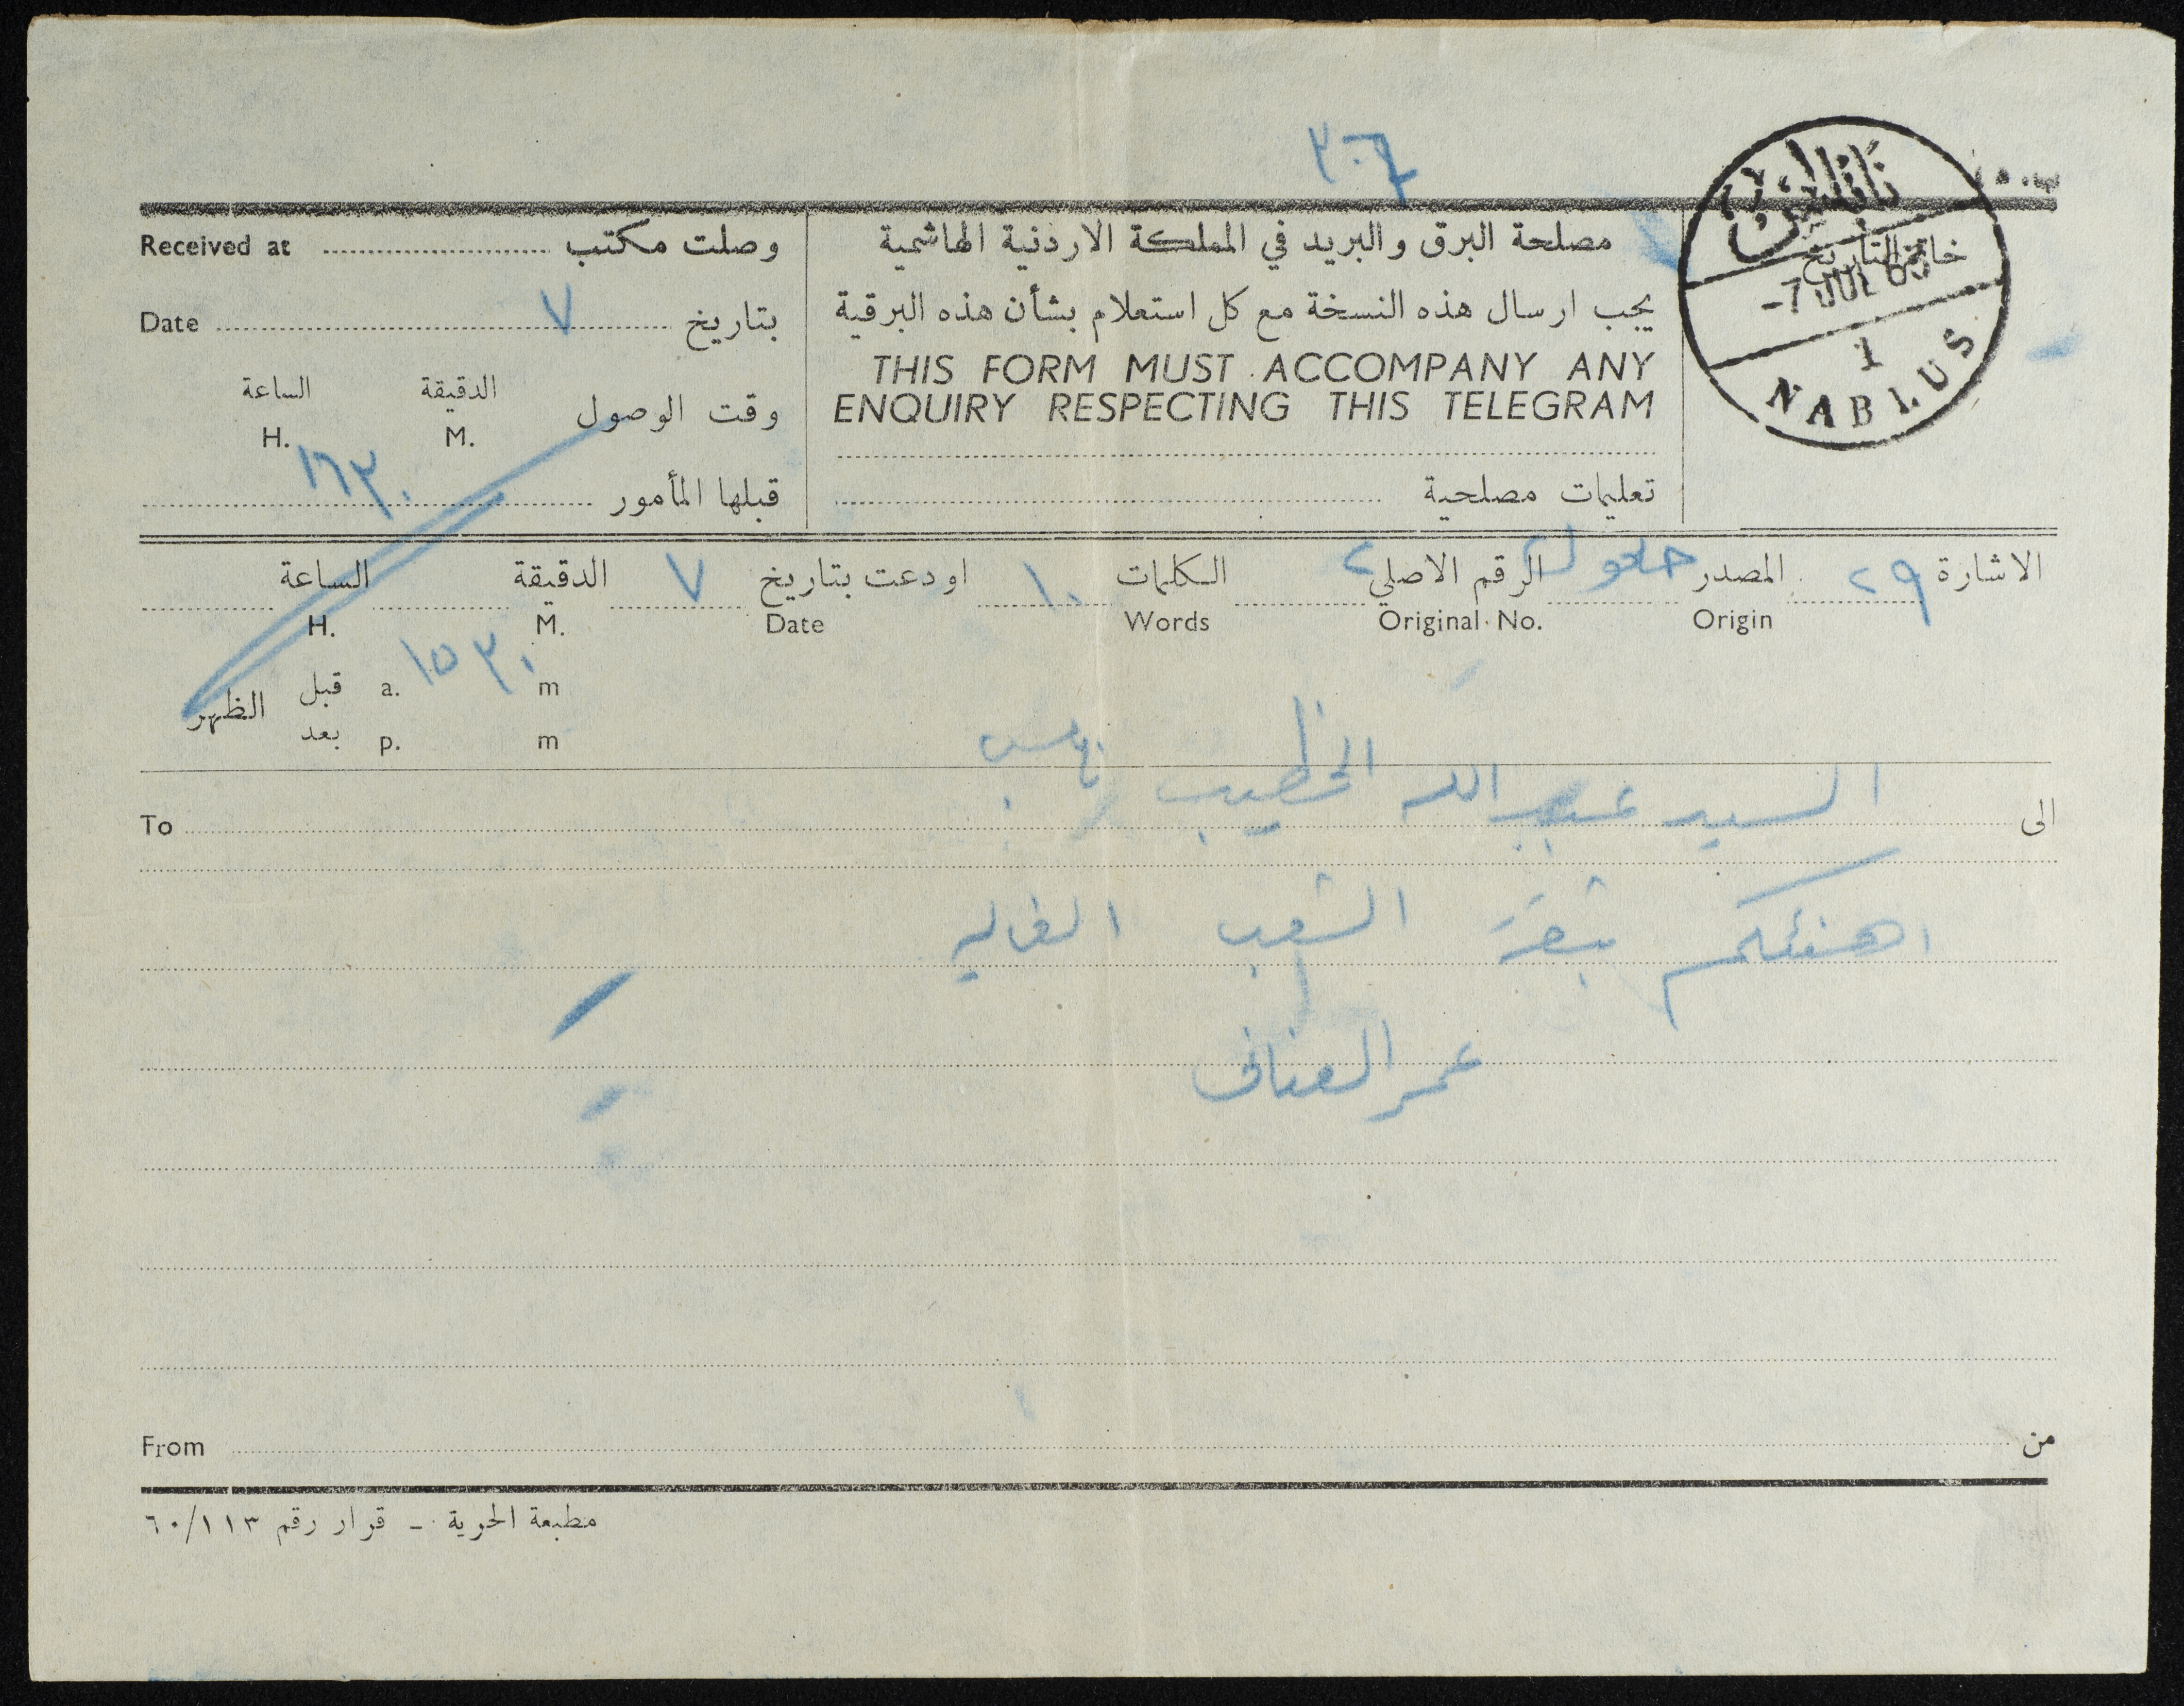 ٣٠٦
نابلس
خاتم التاريخ
-7 JUL 63
1
NABLUS
مصلحة البرق والبريد في المملكة الاردنية الهاشمية
يجب ارسال هذه النسخة مع كل استعلام بشأن هذه البرقية
THIS FORM MUST ACCOMPANY ANY
ENQUIRY RESPECTING THIS TELEGRAM
تعليمات مصلحية
وصلت مكتب Received at
بتاريخ ٧ Date
وقت الوصول الدقيقة الساعة
M. H.
١٦٣٠
قبلها المأمور
الاشارة ٢٩ المصدر حلحول الرقم الاصلي ٢ الكلمات ١٠ اودعت بتاريخ ٧ الدقيقة الساعة
Origin Original No. Words Date M. H.
١٥٣٠
قبل a. m
الظهر
بعد p. m
الى السيد عبد الله الخطيب نابلس To
اهنئكم بثقة الشعب الغاليه
عمر العناني
من From
مطبعة الحرية - قرار رقم ٦٠/١١٣